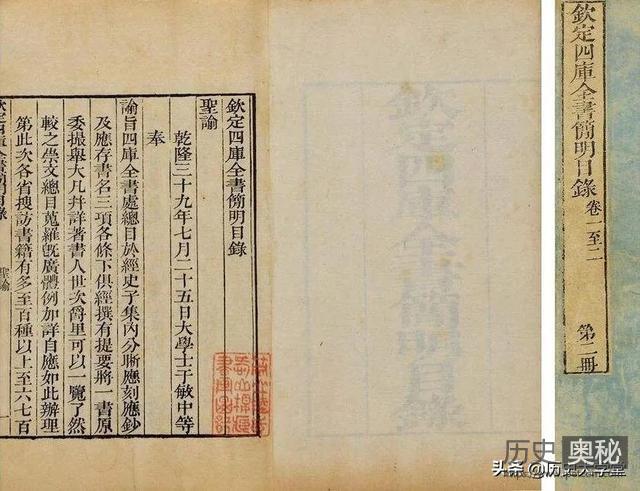 欽定四庫全書簡明目錄 卷一至二 第二冊
欽定四庫全書簡明目錄
欽定四庫全書簡明目錄
聖諭
乾隆三十九年七月二十五日大學士于敏中等
奉
諭旨四庫全書處總目於經史子集內分晰應刻應鈔
及應存書名三項各條下俱經撰有提要將一書原
委撮舉大凡并詳著書人世次爵里可以一覽了然
較之崇文總目蒐羅既廣體例加詳自應如此辦理
第此次各省搜訪書籍有多至百種以上至六七百
欽定四庫全書簡明目錄 聖諭
历史奥秘
头条 @历史大学堂